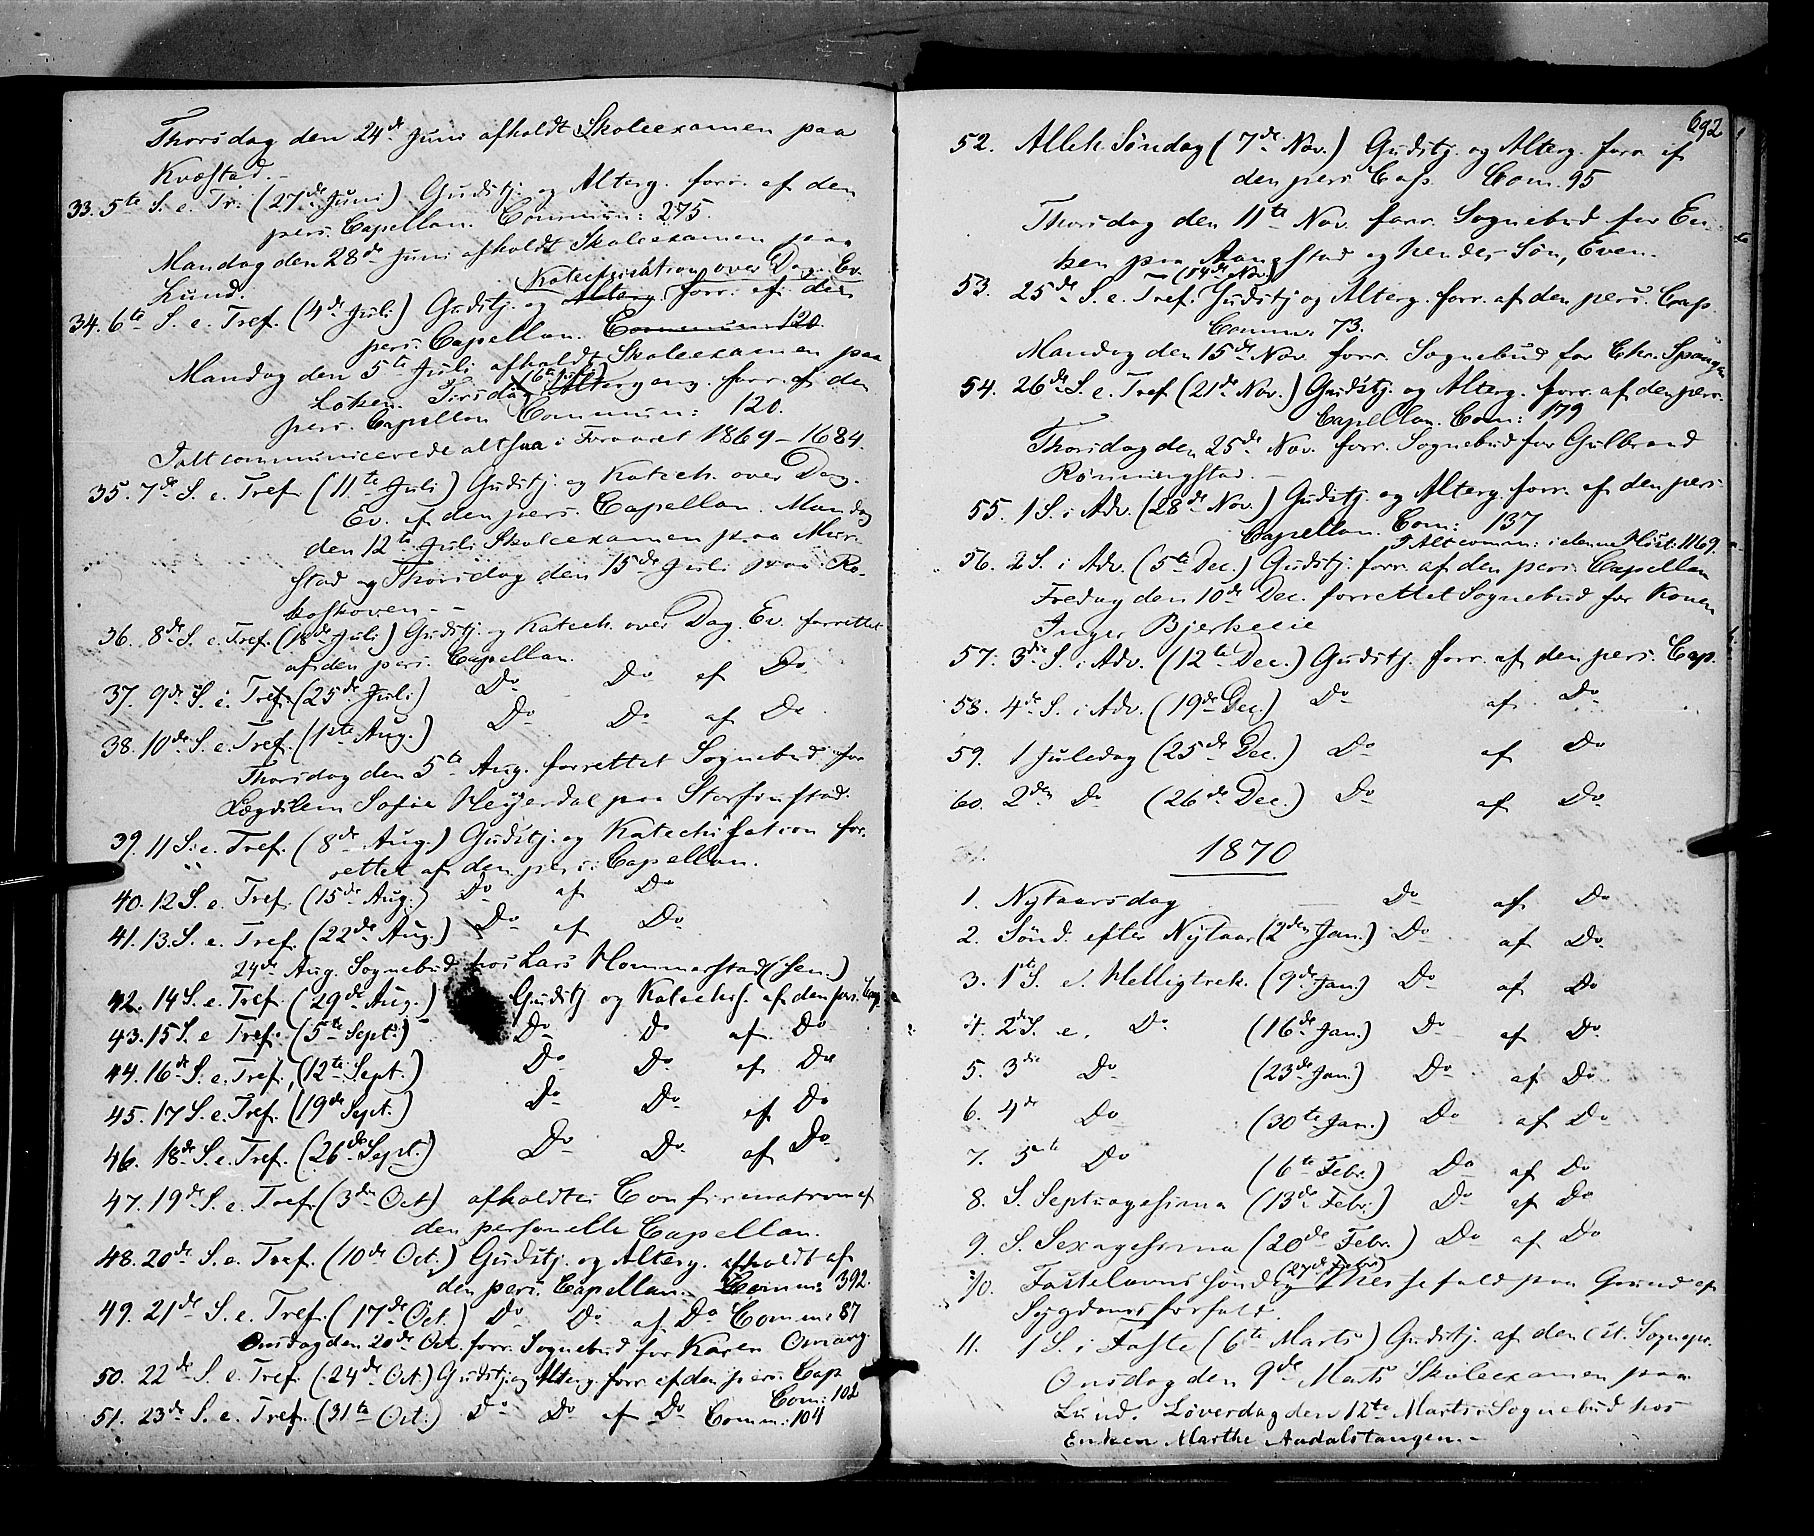 Thorsdag den 24de Juni afholdt Skoleexamen paa
Kvæstad.-
33. 5te S. e. Tr. (27de Juni) Gudstj. og Alterg. forr. af den
pers. Capellan. Commun: 275.
Mandag den 28de Juni afholdt Skoleexamen paa
Lund. Katechisation over Dag. Ev.
34. 6te S. e. Tref. (4de Juli) Gudstj. og Alterg. forr. af den
pers. Capellan. Commun: 120
Mandag den 5te Juli afholdt Skoleexamen paa
Løken. Tirsdag (6te Juli) Altergang. forr. af den
pers. Capellan Commun: 120.
I alt communicerede altsaa i Foraaret 1869 - 1684.
35. 7de S. e. Tref. (11te Juli) Gudstj. og Katech. over Dag.
Ev. af den pers. Capellan. Mandag
den 12te Juli Skoleexamen paa
stad og Thorsdag den 15de Juli paa Ro-
koskoven - -
36. 8de S. e. Tref. (18de Juli) Gudstj. og Katech. over Dag. Ev. forrettet
af den pers. Capellan.
37. 9de S. e. Tref. (25de Juli) Do Do af Do
38. 10de S. e. Tref. (1ste Aug.) Do Do af Do
Thorsdag den 5te Aug. forrettet Sognebud for
Lægdslem Sofie Heyerdal paa Storfinstad.
39. 11 S. e. Tref. (8de Aug.) Gudstj. og Katechisation for-
rettet af den pers: Capellan.
40. 12 S. e. Tref. (15de Aug.) Do af Do
41. 13. S. e. Tref. (22de Aug.) Do af Do
24de Aug. Sognebud hos Lars Hommerstad (sen.)
42. 14 S. e. Tref. (29de Aug.) Gudstj. og Katechis. af den pers. Cap.
43. 15 S. e Tref. (5te Sept.) Do Do af Do
44. 16de S. e. Tref. (12te Sept.) Do Do af Do
45. 17 S. e. Tref. (19de Sept.) Do Do af Do
46. 18de S. e. Tref. (26de Sept.) Do Do af Do
47. 19de S. e. Tref. (3die Oct) afholdtes Confirmation af
den personelle Capellan.
48. 20de S. e. Tref. (10de Oct.) Gudstj. og Alterg. afholdt af
den pers. Capellan. Comm: 392.
49. 21de S. e. Tref. (17de Oct.) Do Do af Do Comm: 87
Onsdag den 20de Oct. forr. Sognebud for Karen
50. 22de S. e. Tref. (24de Oct.) Gudstj. og Alterg. forr. af den pers. Cap
Com: 102
51. 23de S. e. Tref. (31te Oct.) Do Do af Do Comm: 104
692
52. Alleh. Søndag (7de Nov.) Gudstj. og Alterg. forr. af
den pers Cap. Com. 95
Thorsdag den 11te Nov. forr. Sognebud for En-
ken paa Aangstad og hendes Søn, Even.
53. 25de S. e. Tref. (14de Nov) Gudstj og Alterg. forr. af den pers. Cap.
Comm: 73.
Mandag den 15de Nov. forr. Sognebud for Chr. Spangen
54. 26de S. e. Tref (21de Nov.) Gudstj. og Alterg. forr. af den pers.
Capellan. Com: 179
Thorsdag den 25de Nov. forr. Sognebud for Gulbrand
Rønningstad. -
55. 1 S. i Adv. (28de Nov.) Gudstj. og Alterg. forr. af den pers.
Capellan. Com: 137
I Alt comm: i denne Høst: 1169.
56. 2 S. i Adv. (5te Dec.) Gudstj. forr. af den pers. Capellan
Fredag den 10de Dec. forrettet Sognebud for Konen
Inger Bjerkeeie
57. 3die S. i Adv. (12te Dec.) Gudstj. forr. af den pers. Cap.
58. 4de S. i Adv. (19de Dec.) Do af Do
59. 1 Juledag (25de Dec.) Do af Do
60. 2den Do (26de Dec.) Do af Do
1870
1. Nytaarsdag Do af Do
2. Sønd. efter Nytaar (2den Jan.) Do af Do
3. 1ste S. e. Helligtrek. (9de Jan.) Do af Do
4. 2de S. e. Do (16de Jan.) Do af Do
5. 3die Do (23de Jan.) Do af Do
6. 4de Do (30te Jan.) Do af Do
7. 5te Do (6te Febr.) Do af Do
8. S. Septuagesima (13de Febr.) Do af Do
9. S. Sexagesima (20de Febr.) Do af Do
10. Fastelavns Søndag (27de Febr) Messefald paa Grund af
Sygdomsforfald.
11. 1 S. i Faste (6te Marts) Gudstj. af den cst. Sognepr.
Onsdag den 9de Marts Skoleexamen paa
Lund. Løverdag den 12te Marts Sognebud hos
Enken Marthe Aadalstangen. -